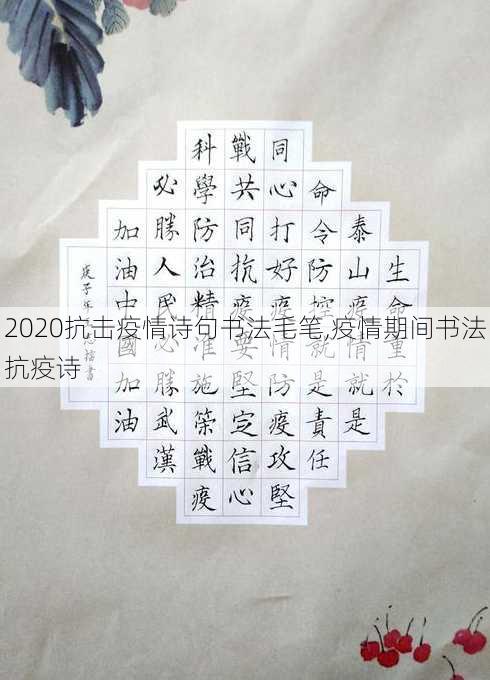 生命重於
泰山疫情就是
命令防控就是責任
同心打好疫情防疫攻堅
戰共同抗疫要堅定信心
科學防治精准施策戰疫
必勝人民必勝武漢
加油中國加油
庚子年 書
2020抗击疫情诗句书法毛笔,疫情期间书法
抗疫诗